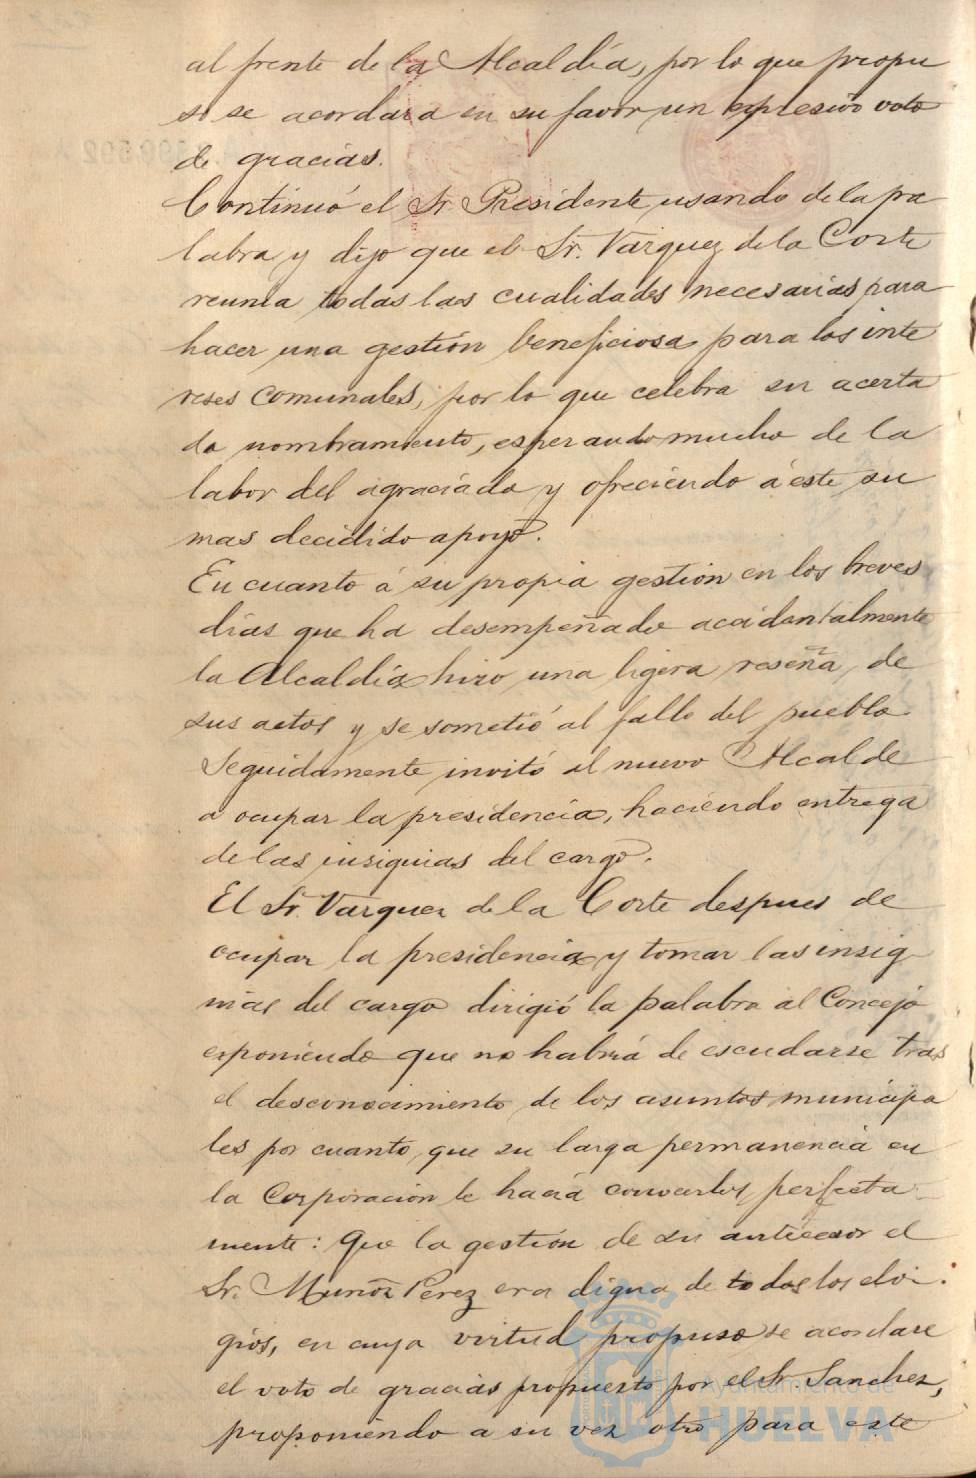 al frente de la Alcaldía, por lo que propu
so se acordara en su favor un expresivo voto
de gracias.
Continuó el Sr. Presidente usando de la pa
labra y dijo que el Sr. Vazquez de la Corte
reunia todas las cualidades necesarias para
hacer una gestión beneficiosa para los inte
reses comunales, por lo que celebra su acerta
do nombramiento, esperando mucho de la
labor del agraciado y ofreciendo á éste su
mas decidido apoyo.
En cuanto á su propia gestión en los breves
dias que ha desempeñado accidentalmente
la Alcaldía hizo una ligera reseña de
sus actos y se sometió al fallo del pueblo.
Seguidamente invitó al nuevo Alcalde
a ocupar la presidencia, haciendo entrega
de las insignias del cargo.
El Sr. Vazquez de la Corte despues de
ocupar la presidencia y tomar las insig
nias del cargo dirigió la palabra al Concejo
exponiendo que no habria de escudarse tras
el desconocimiento de los asuntos municipa
les por cuanto, que su larga permanencia en
la Corporación le hacia conocerlos perfecta
mente: Que la gestión de su antecesor el
Sr. Muñoz Perez era digna de todos los elo
gios, en cuya virtud propuso se acordase
el voto de gracias propuesto por el Sr. Sanchez,
proponiendo a su vez otro para este
Ayuntamiento de
HUELVA